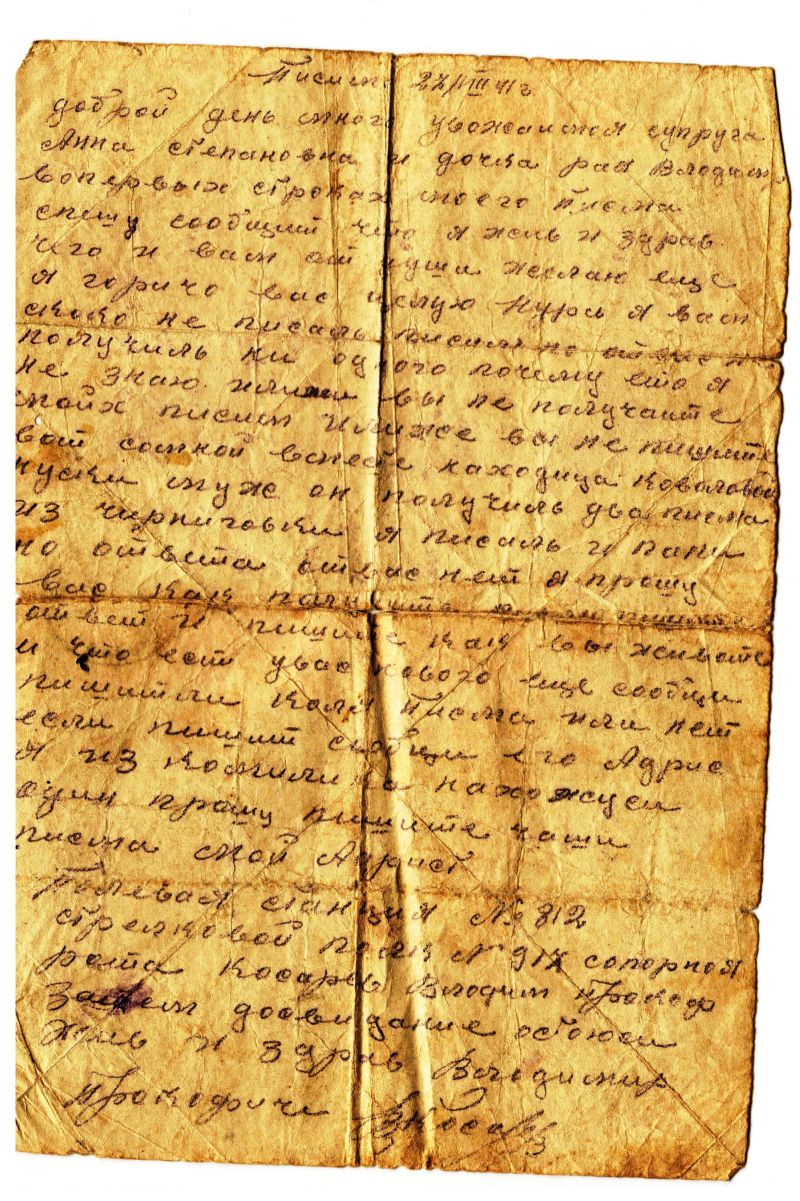 Писмо 27/VIII 41г
доброй день много уважаимая супруга
Анна степановна и дочка рая Владим
вопервых строках моего Писма
спешу сообщит что я жив и здрав
чего и вам от души желаю еще
я горичо вас целую Нура я вам
скоко не писаль писем но от вас не
получиль ни одного почему ето я
не знаю или вы не получаите
мойх писем илиже вы не пишите
вот сомной вместе находица Коваловой
нуски муж он получиль два писма
из чирниговки я писаль и пани
но ответа отвас нет я прошу
вас как получите пишите
ответ и пишите как вы живете
и что ест увас нового еще сообщи
пишитли Коля Писма или нет
если пишит сообщи его Адрис
я из находжуси
один прошу пишите чаши
писма мой Адрист
Полевая станция № 812
стрелковой полк № 917 сопорной
рота Косарев Владим Прокоф
Затем досвидание остоюси
жив и здрав Владимир
Прокофич ВКосарев